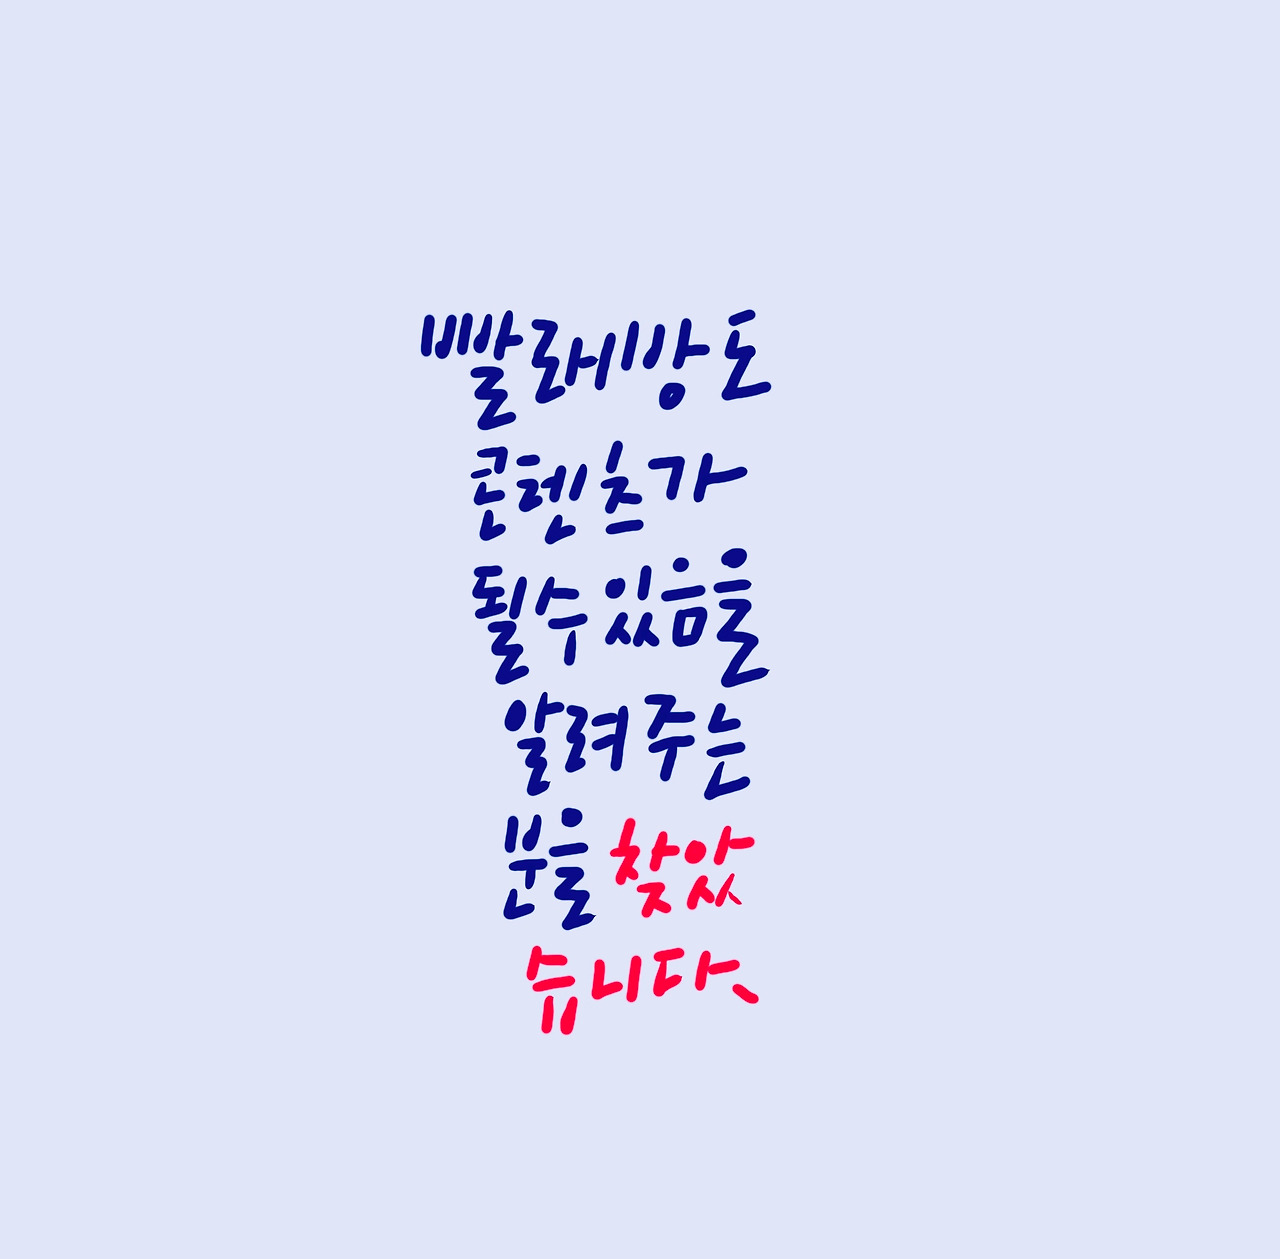 빨래방도
콘텐츠가
될수있음을
알려주는
분을 찾았
습니다